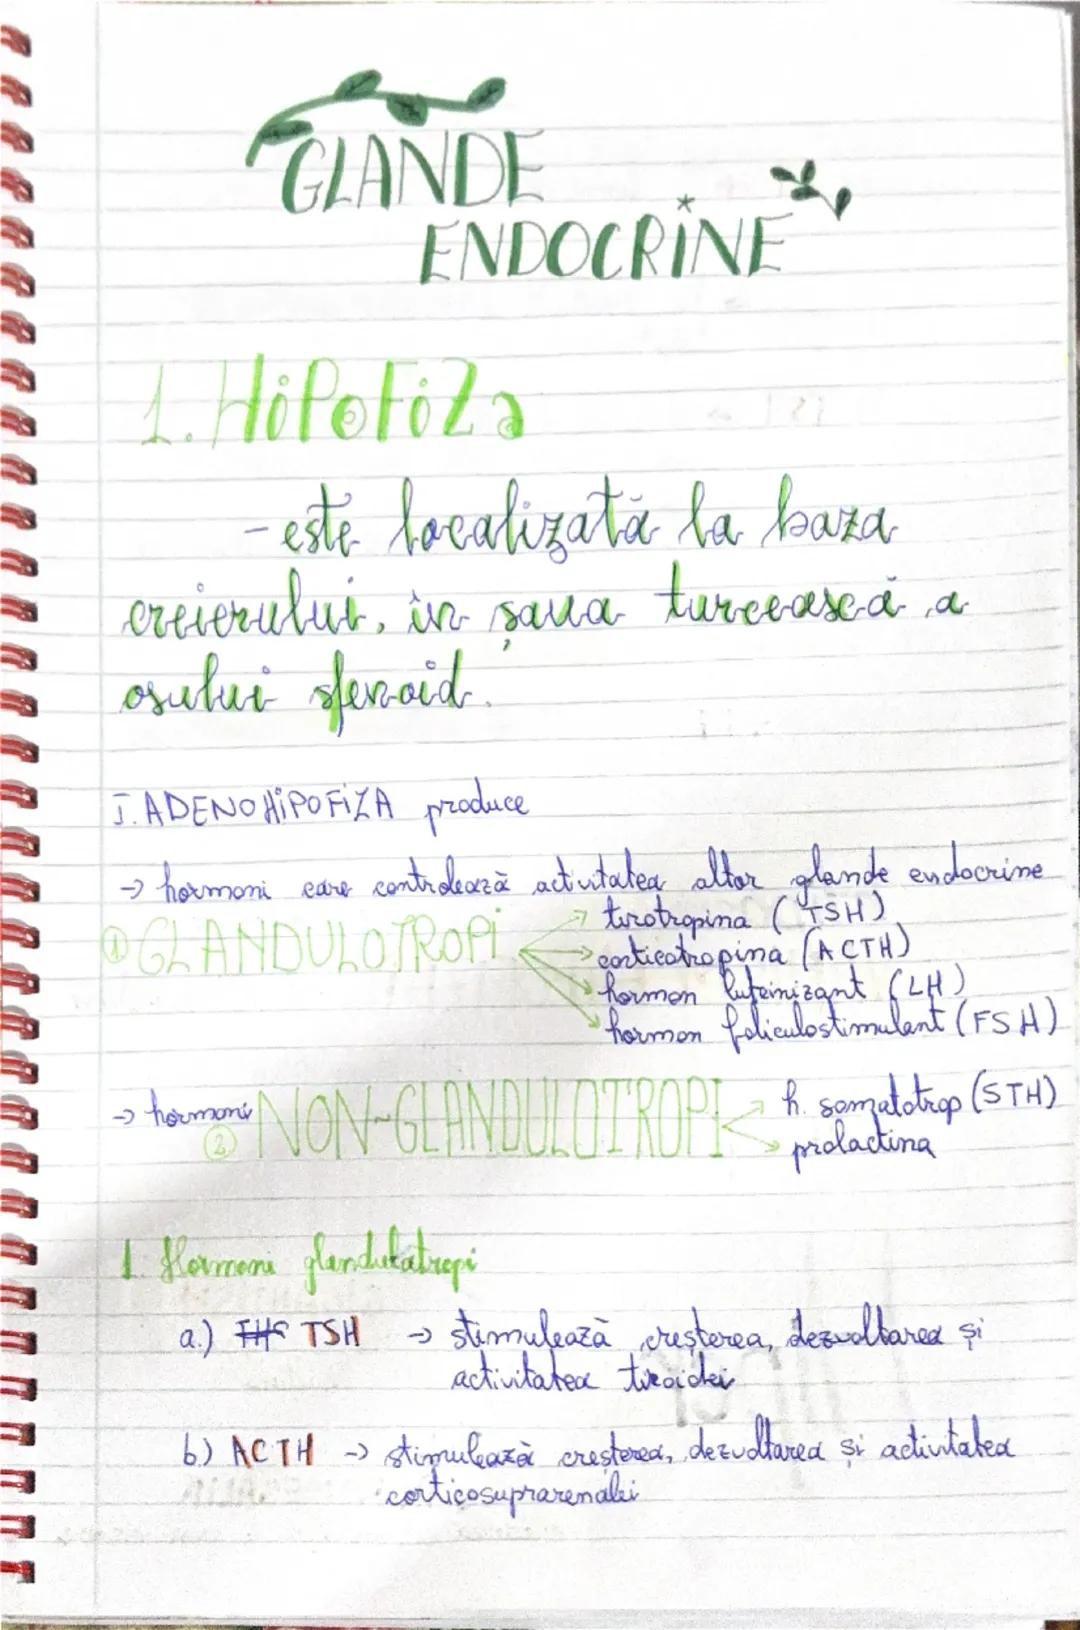 GLANDE
ENDOCRINE
1. HiPoFiZa
- este localizată la baza
creierului, în șaua turcească a
osului sfenoid.
I. ADENOHiPOFiZA produce
→ hormoni care controlează activitatea altor glande endocrine
① GLANDULOTROPi → tirotropina (TSH)
→ corticotropina (ACTH)
→ hormon luteinizant (LH)
→ hormon foliculostimulant (FSH)
→ hormoni ② NON-GLANDULOTROPI → h. somatotrop (STH)
→ prolactina
1. Hormoni glandulatropi
a.) TSH → stimulează creșterea, dezvoltarea și
activitatea tiroidei
b.) ACTH → stimulează creșterea, dezvoltarea și activitatea
corticosuprarenalei